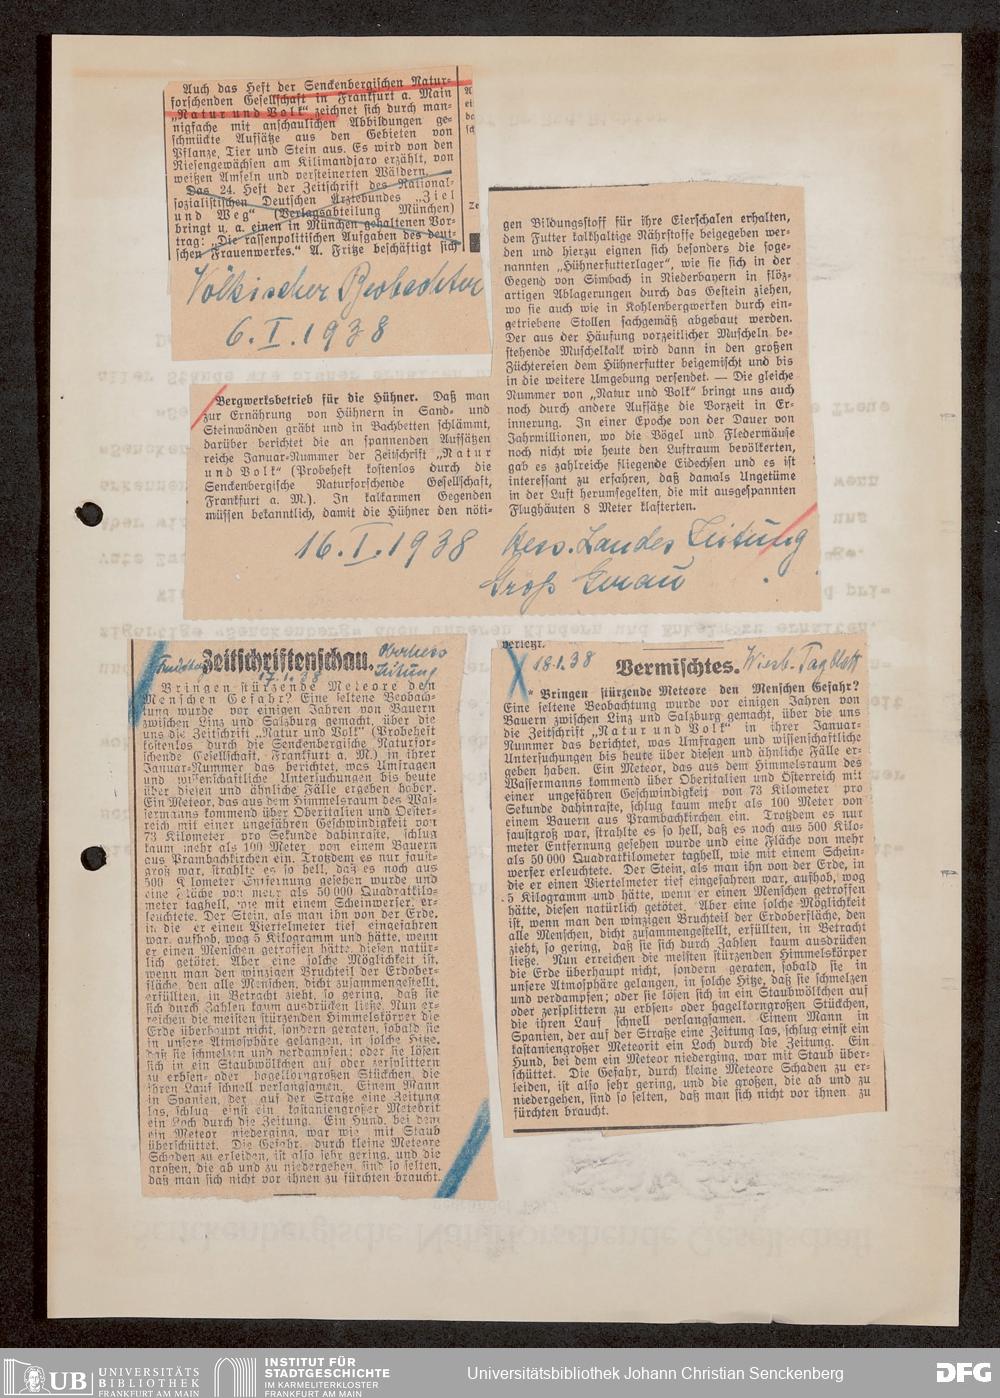 Auch das Heft der Senckenbergischen Natur-
forschenden Gesellschaft in Frankfurt a. Main
„Natur und Volk“ zeichnet sich durch man-
nigfache mit anschaulichen Abbildungen ge-
schmückte Aufsätze aus den Gebieten von
Pflanze, Tier und Stein aus. Es wird von den
Riesengewächsen am Kilimandjaro erzählt, von
weißen Amseln und versteinerten Wäldern.
Das 24. Heft der Zeitschrift des National-
sozialistischen Deutschen Ärztebundes „Ziel
und Weg“ (Verlagsabteilung München)
bringt u. a. einen in München gehaltenen Vor-
trag: „Die rassenpolitischen Aufgaben des deut-
schen Frauenwerkes.“ A. Fritze beschäftigt sich
Völkischer Beobachter
6. I. 1938
Bergwerksbetrieb für die Hühner. Daß man
zur Ernährung von Hühnern in Sand- und
Steinwänden gräbt und in Bachbetten schlämmt,
darüber berichtet die an spannenden Aufsätzen
reiche Januar-Nummer der Zeitschrift „Natur
und Volk“ (Probeheft kostenlos durch die
Senckenbergische Naturforschende Gesellschaft,
Frankfurt a. M.). In kalkarmen Gegenden
müssen bekanntlich, damit die Hühner den nöti-
gen Bildungsstoff für ihre Eierschalen erhalten,
dem Futter kalkhaltige Nährstoffe beigegeben wer-
den und hierzu eignen sich besonders die soge-
nannten „Hühnerfutterlager“, wie sie sich in der
Gegend von Simbach in Niederbayern in flöz-
artigen Ablagerungen durch das Gestein ziehen,
wo sie auch wie in Kohlenbergwerken durch ein-
getriebene Stollen fachgemäß abgebaut werden.
Der aus der Häufung vorzeitlicher Muscheln be-
stehende Muschelkalk wird dann in den großen
Züchtereien dem Hühnerfutter beigemischt und bis
in die weitere Umgebung versendet. — Die gleiche
Nummer von „Natur und Volk“ bringt uns auch
noch durch andere Aufsätze die Vorzeit in Er-
innerung. In einer Epoche von der Dauer von
Jahrmillionen, wo die Vögel und Fledermäuse
noch nicht wie heute den Luftraum bevölkerten,
gab es zahlreiche fliegende Eidechsen und es ist
interessant zu erfahren, daß damals Ungetüme
in der Luft herumsegelten, die mit ausgespannten
Flughäuten 8 Meter klafterten.
16. I. 1938 Hess. Landes Zeitung
Groß Gerau
Zeitschriftenschau.
Oberhess
Zeitung
17.1.38
Bringen stürzende Meteore den
Menschen Gefahr? Eine seltene Beobach-
tung wurde vor einigen Jahren von Bauern
zwischen Linz und Salzburg gemacht, über die
uns die Zeitschrift „Natur und Volk“ (Probeheft
kostenlos durch die Senckenbergische Naturfor-
schende Gesellschaft, Frankfurt a. M.) in ihrer
Januar-Nummer das berichtet, was Umfragen
und wissenschaftliche Untersuchungen bis heute
über diesen und ähnliche Fälle ergeben haben.
Ein Meteor, das aus dem Himmelsraum des Was-
sermanns kommend über Oberitalien und Oester-
reich mit einer ungefähren Geschwindigkeit von
73 Kilometer pro Sekunde dahinraste, schlug
kaum mehr als 100 Meter von einem Bauern
aus Prambachkirchen ein. Trotzdem es nur faust-
groß war, strahlte es so hell, daß es noch aus
500 Kilometer Entfernung gesehen wurde und
eine Fläche von mehr als 50 000 Quadratkilo-
meter taghell, wie mit einem Scheinwerfer er-
leuchtete. Der Stein, als man ihn von der Erde,
in die er einen Viertelmeter tief eingefahren
war, aufhob, wog 5 Kilogramm und hätte, wenn
er einen Menschen getroffen hätte, diesen natür-
lich getötet. Aber eine solche Möglichkeit ist,
wenn man den winzigen Bruchteil der Erdober-
fläche, den alle Menschen, dicht zusammengestellt,
erfüllten, in Betracht zieht, so gering, daß sie
sich durch Zahlen kaum ausdrücken ließe. Nun er-
reichen die meisten stürzenden Himmelskörper die
Erde überhaupt nicht, sondern geraten, sobald sie
in unsere Atmosphäre gelangen, in solche Hitze,
daß sie schmelzen und verdampfen; oder sie lösen
sich in ein Staubwölkchen auf oder zersplittern
zu erbsen- oder hagelkorngroßen Stückchen, die
ihren Lauf schnell verlangsamen. Einem Mann
in Spanien, der auf der Straße eine Zeitung
las, schlug einst ein kastaniengroßer Meteorit
ein Loch durch die Zeitung. Ein Hund, bei dem
ein Meteor niederging, war wie mit Staub
überschüttet. Die Gefahr, durch kleine Meteore
Schaden zu erleiden, ist also sehr gering, und die
großen, die ab und zu niedergehen, sind so selten,
daß man sich nicht vor ihnen zu fürchten braucht.
verletzt.
18.1.38
Vermischtes.
Wiesb. Tagblatt
* Bringen stürzende Meteore den Menschen Gefahr?
Eine seltene Beobachtung wurde vor einigen Jahren von
Bauern zwischen Linz und Salzburg gemacht, über die uns
die Zeitschrift „Natur und Volk“ in ihrer Januar-
Nummer das berichtet, was Umfragen und wissenschaftliche
Untersuchungen bis heute über diesen und ähnliche Fälle er-
geben haben. Ein Meteor, das aus dem Himmelsraum des
Wassermanns kommend über Oberitalien und Österreich mit
einer ungefähren Geschwindigkeit von 73 Kilometer pro
Sekunde dahinraste, schlug kaum mehr als 100 Meter von
einem Bauern aus Prambachkirchen ein. Trotzdem es nur
faustgroß war, strahlte es so hell, daß es noch aus 500 Kilo-
meter Entfernung gesehen wurde und eine Fläche von mehr
als 50 000 Quadratkilometer taghell, wie mit einem Schein-
werfer erleuchtete. Der Stein, als man ihn von der Erde, in
die er einen Viertelmeter tief eingefahren war, aufhob, wog
5 Kilogramm und hätte, wenn er einen Menschen getroffen
hätte, diesen natürlich getötet. Aber eine solche Möglichkeit
ist, wenn man den winzigen Bruchteil der Erdoberfläche, den
alle Menschen, dicht zusammengestellt, erfüllten, in Betracht
zieht, so gering, daß sie sich durch Zahlen kaum ausdrücken
ließe. Nun erreichen die meisten stürzenden Himmelskörper
die Erde überhaupt nicht, sondern geraten, sobald sie in
unsere Atmosphäre gelangen, in solche Hitze, daß sie schmelzen
und verdampfen; oder sie lösen sich in ein Staubwölkchen auf
oder zersplittern zu erbsen- oder hagelkorngroßen Stückchen,
die ihren Lauf schnell verlangsamen. Einem Mann in
Spanien, der auf der Straße eine Zeitung las, schlug einst ein
kastaniengroßer Meteorit ein Loch durch die Zeitung. Ein
Hund, bei dem ein Meteor niederging, war mit Staub über-
schüttet. Die Gefahr, durch kleine Meteore Schaden zu er-
leiden, ist also sehr gering, und die großen, die ab und zu
niedergehen, sind so selten, daß man sich nicht vor ihnen zu
fürchten braucht.
UB UNIVERSITÄTS
BIBLIOTHEK
FRANKFURT AM MAIN
INSTITUT FÜR
STADTGESCHICHTE
IM KARMELITERKLOSTER
FRANKFURT AM MAIN
Universitätsbibliothek Johann Christian Senckenberg
DFG